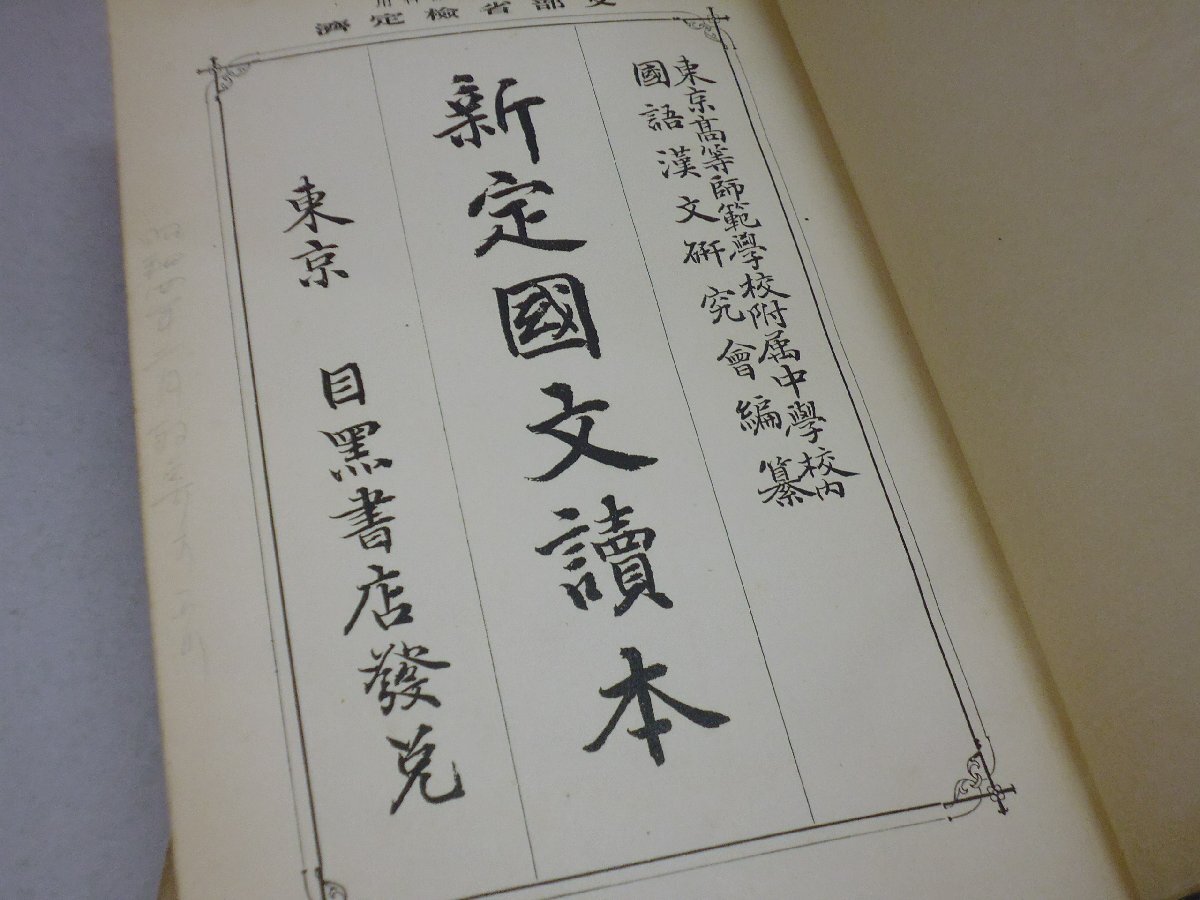 文部省檢定濟
東京高等師範學校附属中學校内
國語漢文硏究會編纂
新定國文讀本
東京 目黑書店發兌